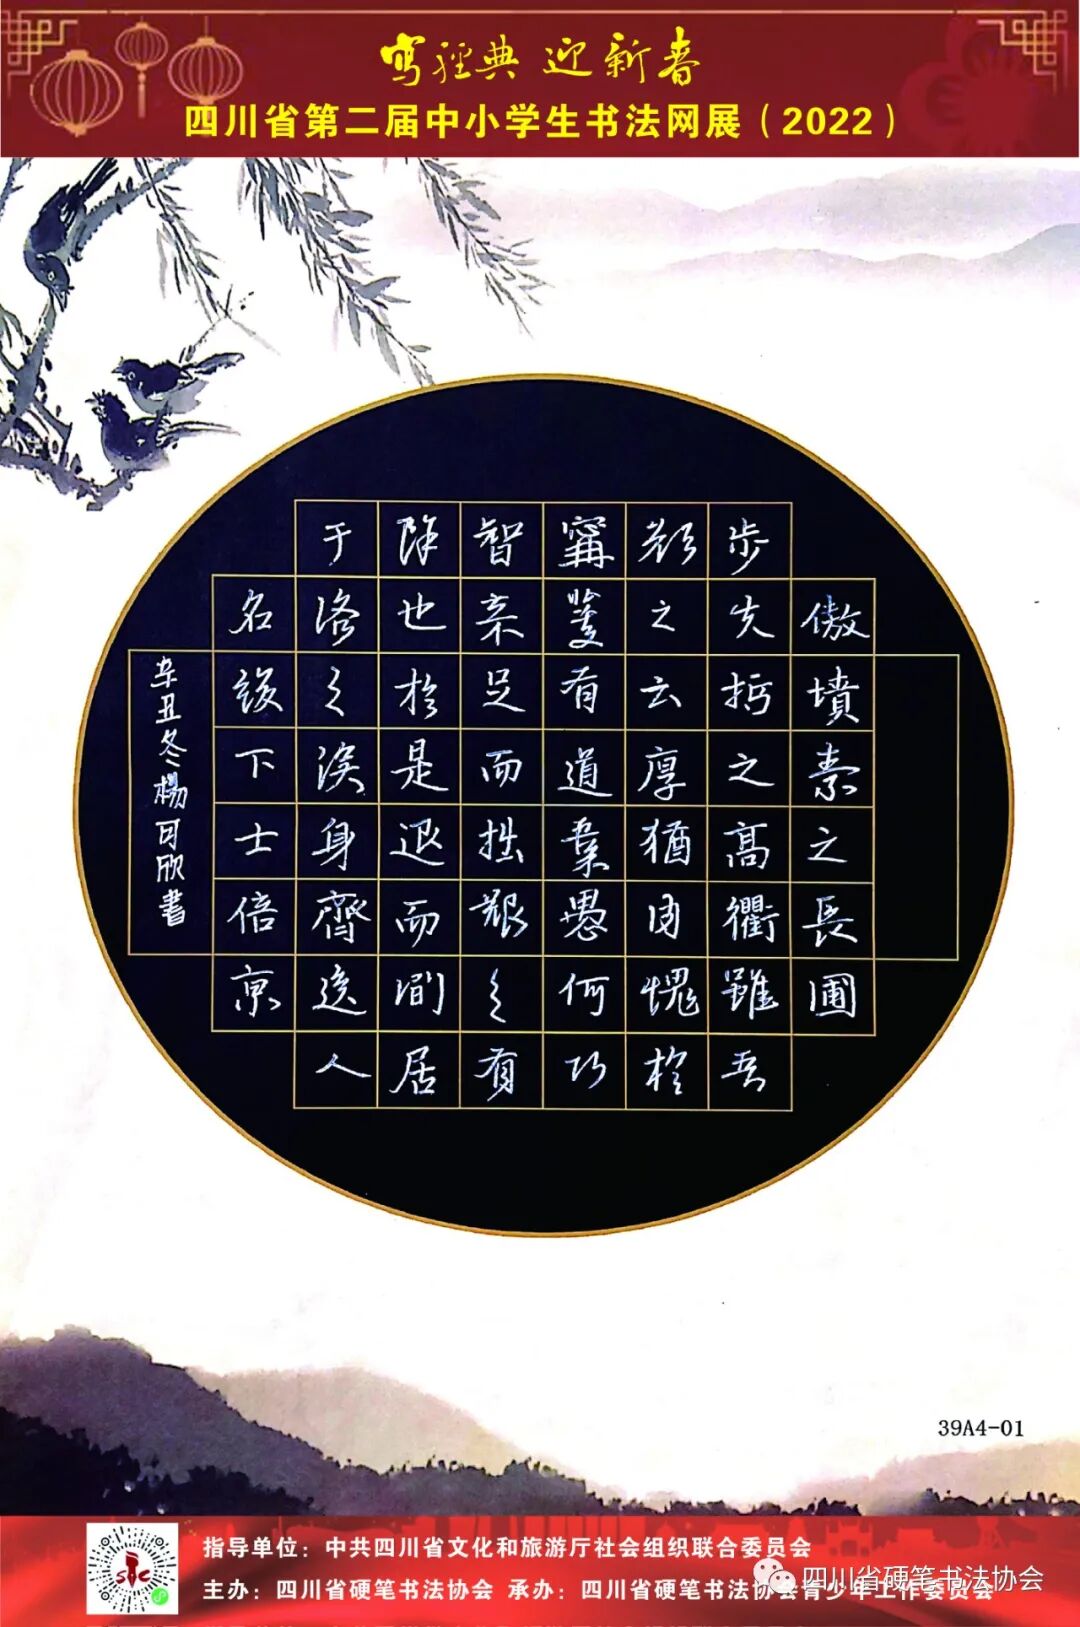 寫經典 迎新春
四川省第二届中小学生书法网展（2022）
傲墳素之長圃
步先哲之高衢雖吾
顏之云厚猶內愧於
寗蘧有道愚何巧
智足而拙艱之有
除也於是退而閒居
于洛之涘身齊逸人
名綴下士倍京
辛丑冬楊可欣書
39A4-01
指导单位：中共四川省文化和旅游厅社会组织联合委员会
主办：四川省硬笔书法协会 承办：四川省硬笔书法协会青少年工作委员会
四川省硬笔书法协会